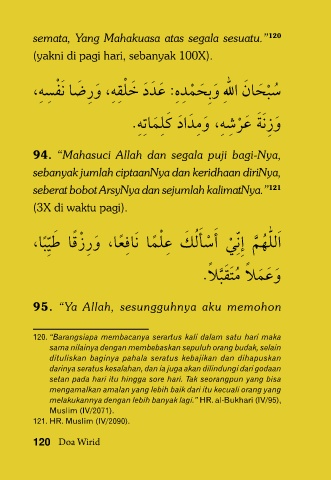 semata, Yang Mahakuasa atas segala sesuatu."120
(yakni di pagi hari, sebanyak 100X).
سُبْحَانَ اللهِ وَبِحَمْدِهِ: عَدَدَ خَلْقِهِ، وَرِضَا نَفْسِهِ،
وَزِنَةَ عَرْشِهِ، وَمِدَادَ كَلِمَاتِهِ.
94. "Mahasuci Allah dan segala puji bagi-Nya,
sebanyak jumlah ciptaanNya dan keridhaan diriNya,
seberat bobot ArsyNya dan sejumlah kalimatNya."121
(3X di waktu pagi).
اَللَّهُمَّ إِنِّيْ أَسْأَلُكَ عِلْمًا نَافِعًا، وَرِزْقًا طَيِّبًا،
وَعَمَلاً مُتَقَبَّلاً.
95. "Ya Allah, sesungguhnya aku memohon
120. "Barangsiapa membacanya serartus kali dalam satu hari maka
sama nilainya dengan membebaskan sepuluh orang budak, selain
dituliskan baginya pahala seratus kebajikan dan dihapuskan
darinya seratus kesalahan, dan ia juga akan dilindungi dari godaan
setan pada hari itu hingga sore hari. Tak seorangpun yang bisa
mengamalkan amalan yang lebih baik dari itu kecuali orang yang
melakukannya dengan lebih banyak lagi." HR. al-Bukhari (IV/95),
Muslim (IV/2071).
121. HR. Muslim (IV/2090).
120 Doa Wirid